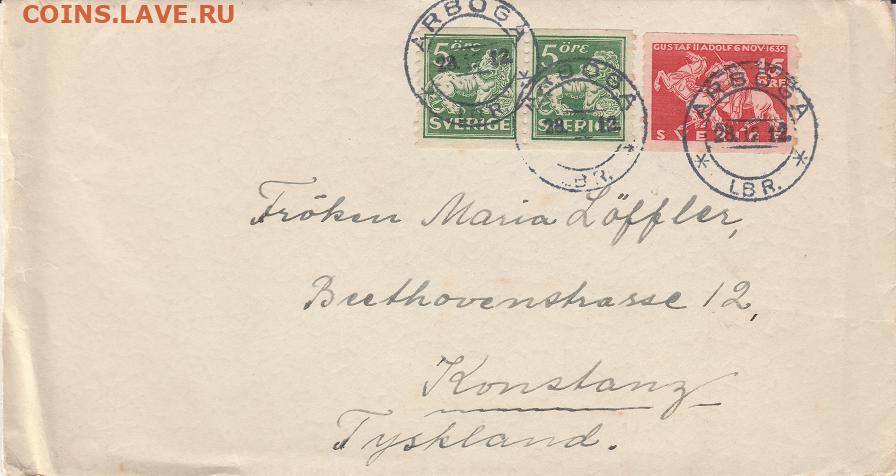 COINS.LAVE.RU
ARBOGA
28.12.12
LBR.
5 ÖRE
SVERIGE
5 ÖRE
SVERIGE
ARBOGA
LBR.
GUSTAF II ADOLF 6 NOV·1632
15 ÖRE
ARBOGA
28.12.12.
LBR.
Fröken Maria Löffler,
Beethovenstrasse 12,
Konstanz
Tyskland.